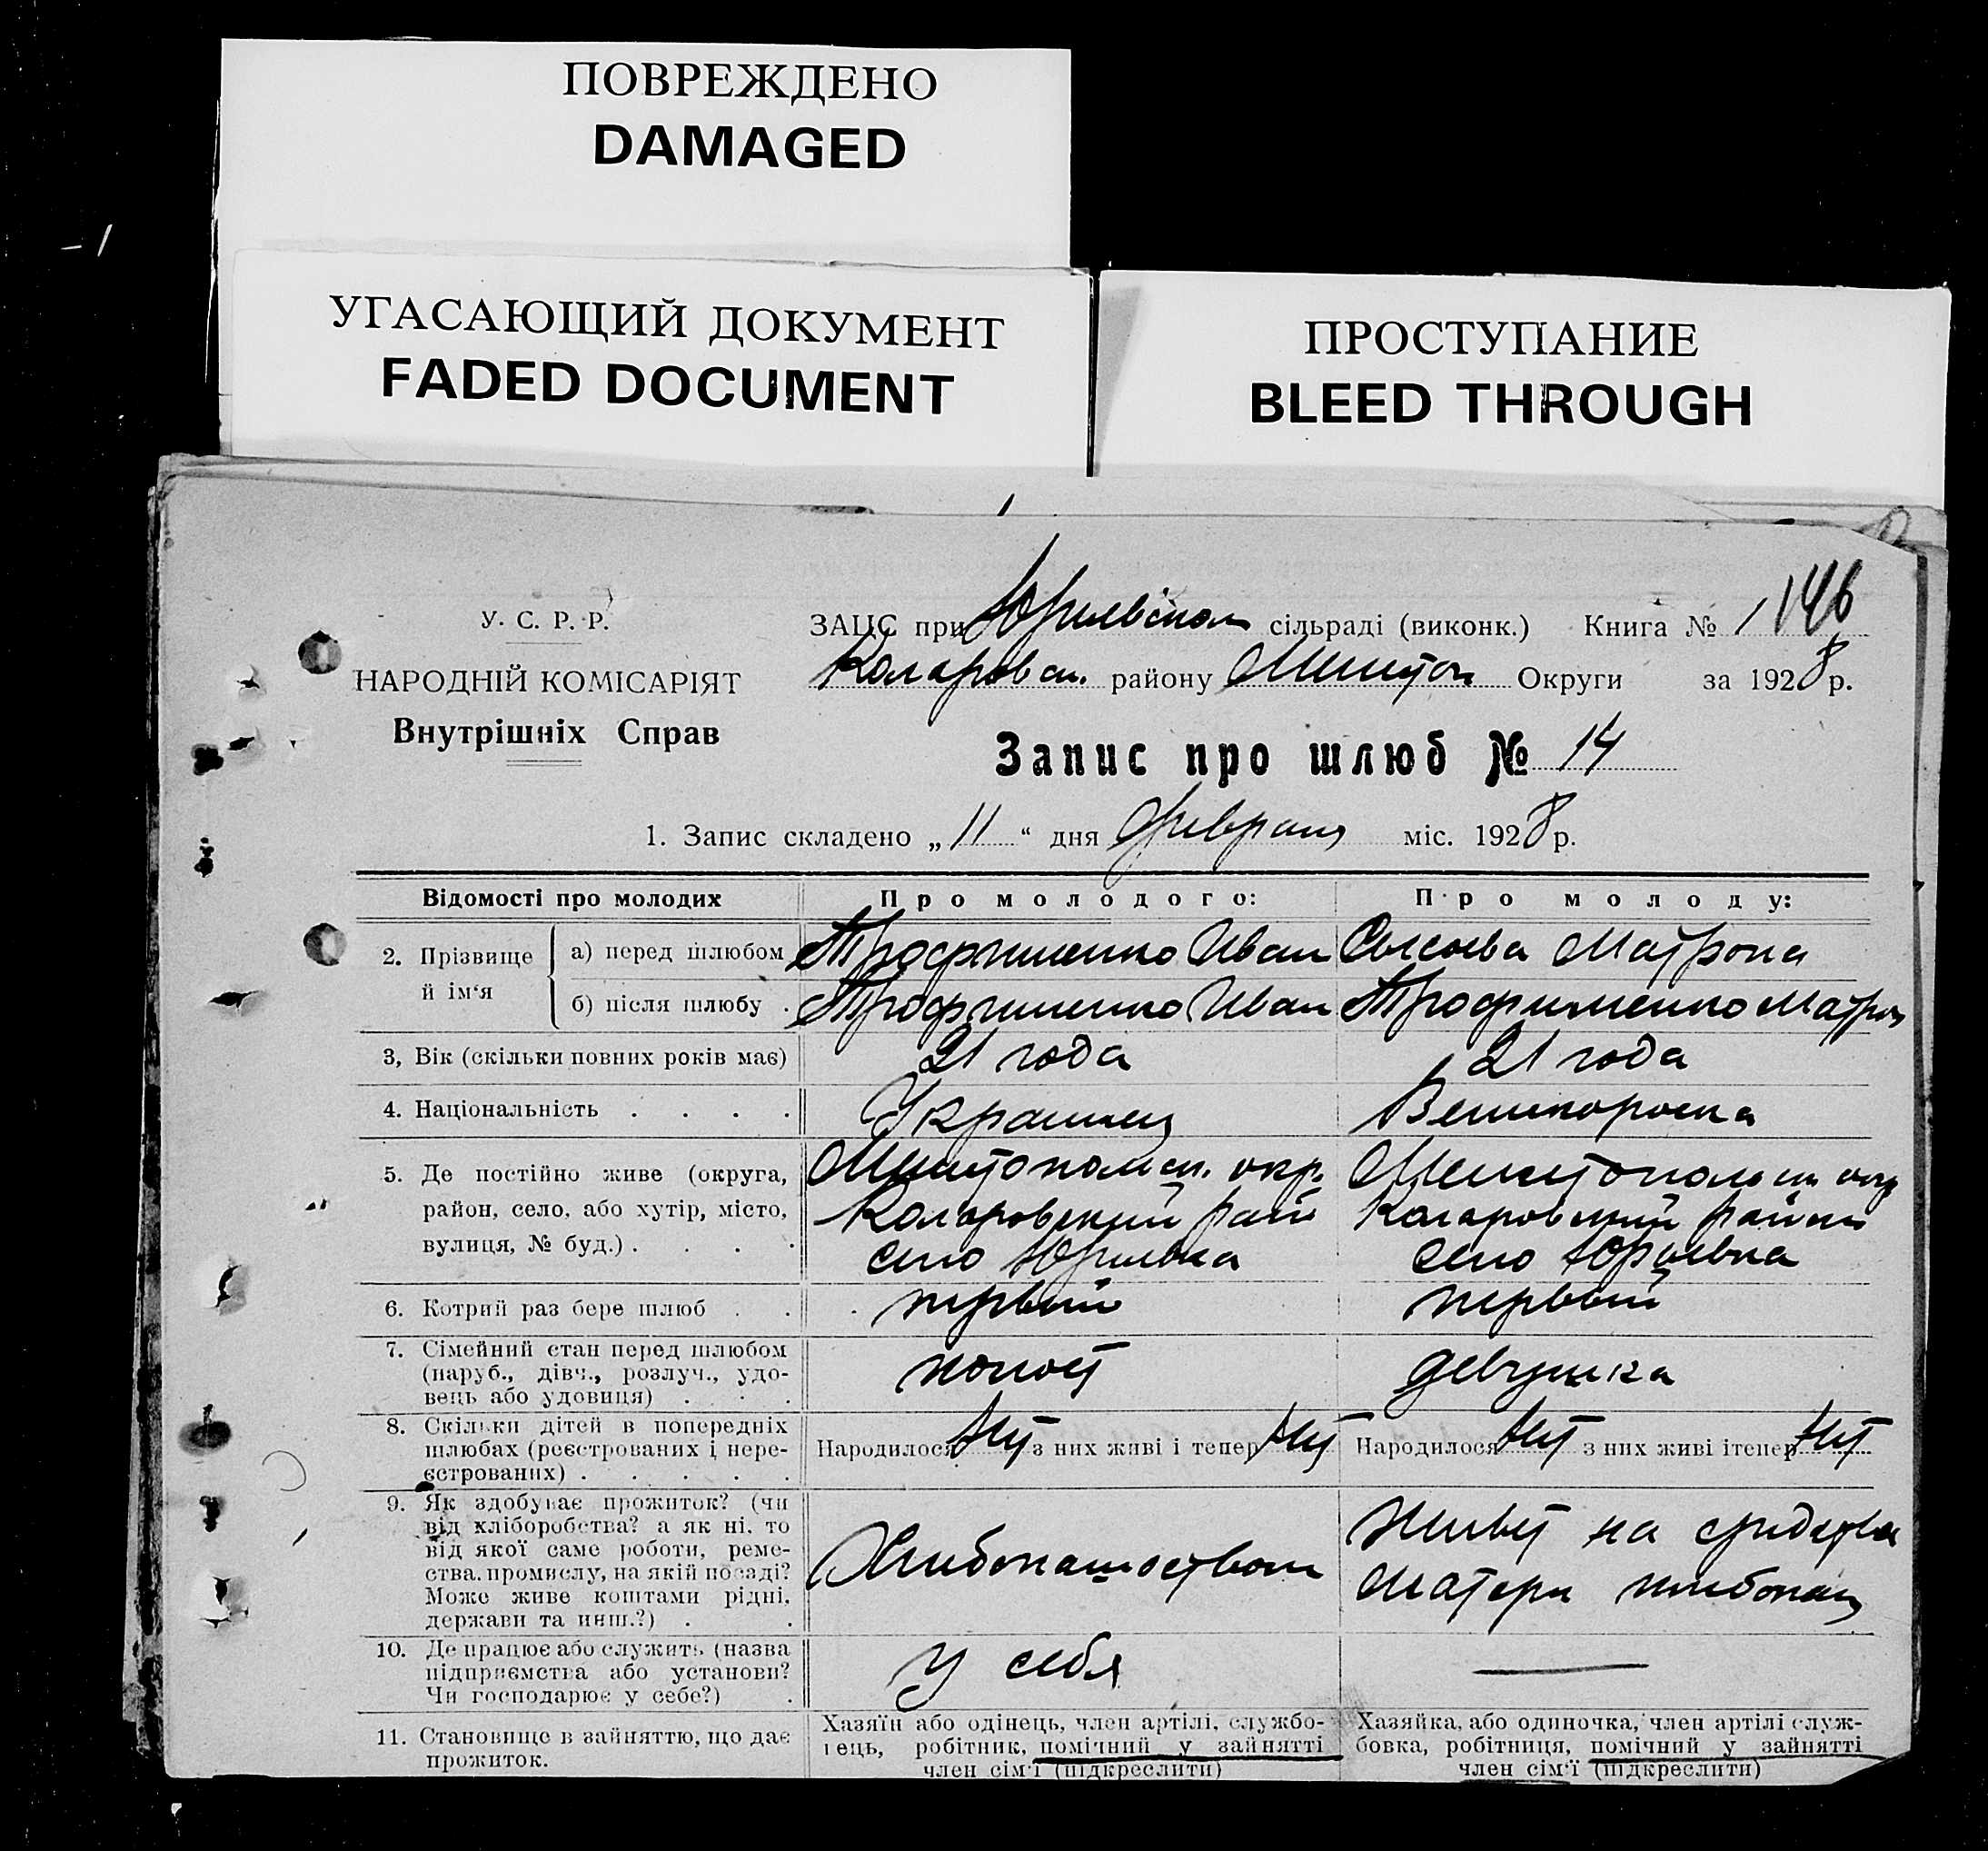 ПОВРЕЖДЕНО
DAMAGED
УГАСАЮЩИЙ ДОКУМЕНТ
FADED DOCUMENT
ПРОСТУПАНИЕ
BLEED THROUGH
У. С. Р. Р.
НАРОДНІЙ КОМІСАРІЯТ
Внутрішніх Справ
ЗАЦС при Юрьевском сільраді (виконк.) Книга № 1 146
Коларовск. району Мелитоп Округи за 1928 р.
Запис про шлюб № 14
1. Запис складено „11“ дня февраля міс. 1928 р.
Відомості про молодих
Про молодого:
Про молоду:
2. Прізвище й ім'я
а) перед шлюбом
Трофименко Иван
Матрона
б) після шлюбу .
Трофименко Иван
Трофименко Матрон
3, Вік (скільки повних років має)
21 года
21 года
4. Національність . . . .
Украинец
Великороска
5. Де постійно живе (округа,
район, село, або хутір, місто,
вулиця, № буд.) . . . .
Мелитопольск. окр.
Коларовский рай
село Юрьевка
Мелитопольск окр
Коларовский район
село Юрьевка
6. Котрий раз бере шлюб . .
первый
первый
7. Сімейний стан перед шлюбом
(паруб., дівч., розлуч., удо-
вець або удовиця) . . .
холост
девушка
8. Скільки дітей в попередніх
шлюбах (реєстрованих і нере-
єстрованих) . . . . .
Народилося Нет з них живі і тепер Нет
Народилося Нет з них живі ітепер Нет
9. Як здобуває прожиток? (чи
від хліборобства? а як ні, то
від якої саме роботи, реме-
ства, промислу, на якій посаді?
Може живе коштами рідні,
держави та инш.?) . .
Хлебопашеством
Живет на средства
матери хлебопаш
10. Де працює або служить (назва
підприємства або установи?
Чи господарює у себе?) .
у себя
—
11. Становище в зайняттю, що дає
прожиток.
Хазяїн або одінець, член артілі, службо-
вець, робітник, помічний у зайнятті
член сім'ї (підкреслити)
Хазяйка, або одиночка, член артілі служ-
бовка, робітниця, помічний у зайнятті
член сім'ї (підкреслити)